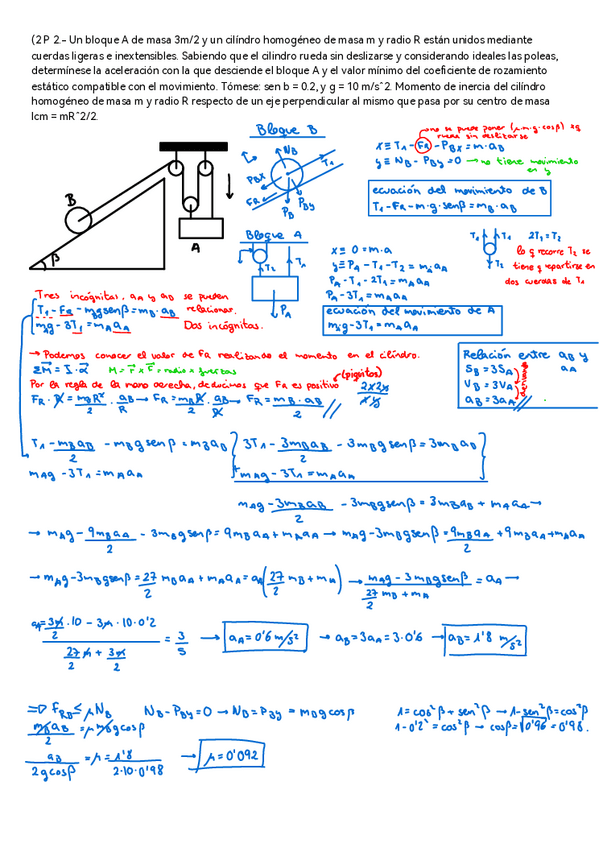 (2 P 2.- Un bloque A de masa 3m/2 y un cilíndro homogéneo de masa m y radio R están unidos mediante
cuerdas ligeras e inextensibles. Sabiendo que el cilindro rueda sin deslizarse y considerando ideales las poleas,
determínese la aceleración con la que desciende el bloque A y el valor mínimo del coeficiente de rozamiento
estático compatible con el movimiento. Tómese: sen b = 0.2, y g = 10 m/s^2. Momento de inercia del cilíndro
homogéneo de masa m y radio R respecto de un eje perpendicular al mismo que pasa por su centro de masa
Icm = mR^2/2.
Bloque B
no se puede poner (μ·m·g·cosβ) xq
rueda sin deslizarse
x≡ T₁-FR-PBX=m·aB
y≡ NB - PBy=0 → no tiene movimiento
en y
NB
PBX
FR
PB
PBy
T₁
ecuación del movimiento de B
T₁-FR-m·g·senβ=mB·aB
B
A
β
Bloque A
T₂
T₁
PA
x≡ 0=m·a
y≡PA-T₁-T₂=mAaA
PA-T₁-2T₁=mAaA
PA-3T₁=mAaA
T₁ T₁ 2T₁=T₂
T₂
lo q recorre T₂ se
tiene q repartirse en
dos cuerdas de T₁
ecuación del movimiento de A
mAg-3T₁=mAaA
Tres incógnitas, aA y aB se pueden
relacionar.
T₁-FR-mBgsenβ=mB·aB
mAg-3T₁=mAaA
Dos incógnitas.
→ Podemos conocer el valor de FR realizando el momento en el cilindro.
ΣM=I·α M=r×F=radio×fuerzas
Por la regla de la mano derecha, deducimos que FR es positivo (pigritos)
FR·R=mBR²/2·aB/R→FR=mBR/2·aB/R→FR=mB·aB/2
Relación entre aB y
aA
SB=3SA
VB=3VA
aB=3aA
T₁-mBaB/2-mBgsenβ=mBaB
3T₁-3mBaB/2-3mBgsenβ=3mBaB
mAg-3T₁=mAaA
+mAg-3T₁=mAaA
mAg-3mBaB/2-3mBgsenβ=3mBaB+mAaA→
→mAg-9mBaA/2-3mBgsenβ=9mBaA+mAaA→mAg-3mBgsenβ=9mBaA/2+9mBaA+mAaA
→mAg-3mBgsenβ=27/2 mBaA+mAaA=aA(27/2 mB+mA)→mAg-3mBgsenβ/27/2 mB+mA=aA→
aA=3m/2·10-3m·10·0'2/27/2 m+3m/2=3/5→aA=0'6m/s²→aB=3aA=3·0'6→aB=1'8 m/s²
⇒ FRB≤μNB NB-PBy=0→NB=PBy=mBgcosβ
1=cos²β+sen²β→1-sen²β=cos²β
mBaB/2=μmBgcosβ
1-0'2²=cos²β→cosβ=√0'96=0'98.
aB/2gcosβ=μ=1'8/2·10·0'98→μ=0'092